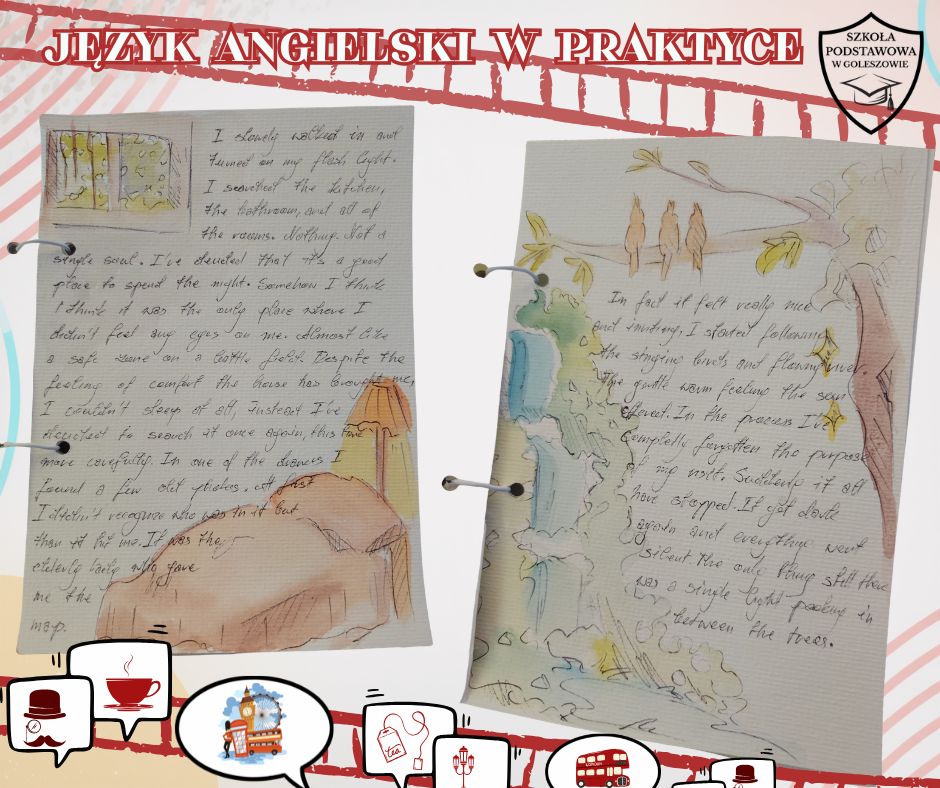 JĘZYK ANGIELSKI W PRAKTYCE
SZKOŁA
PODSTAWOWA
W GOLESZOWIE
I slowly walked in and
turned on my flash light.
I searched the kitchen,
the bathroom, and all of
the rooms. Nothing. Not a
single soul. I've decided that it's a good
place to spend the night. Somehow I think
I think it was the only place where I
didn't feel any eyes on me. Almost like
a safe zone on a battle field. Despite the
feeling of comfort the house has brought me,
I couldn't sleep at all, instead I've
decided to search it once again, this time
more carefully. In one of the drawers I
found a few old photos. At first
I didn't recognize who was in it but
than it hit me. It was the
elderly lady who gave
me the
map.
In fact it felt really nice
and inviting. I started following
the singing birds and flowing river.
The gentle warm feeling the sun
offered. In the process I've
completly forgotten the purpose
of my visit. Suddenly it all
have stopped. It got dark
again and everything went
silent. The only thing still there
was a single light peeking in
between the trees.
tea
LONDON